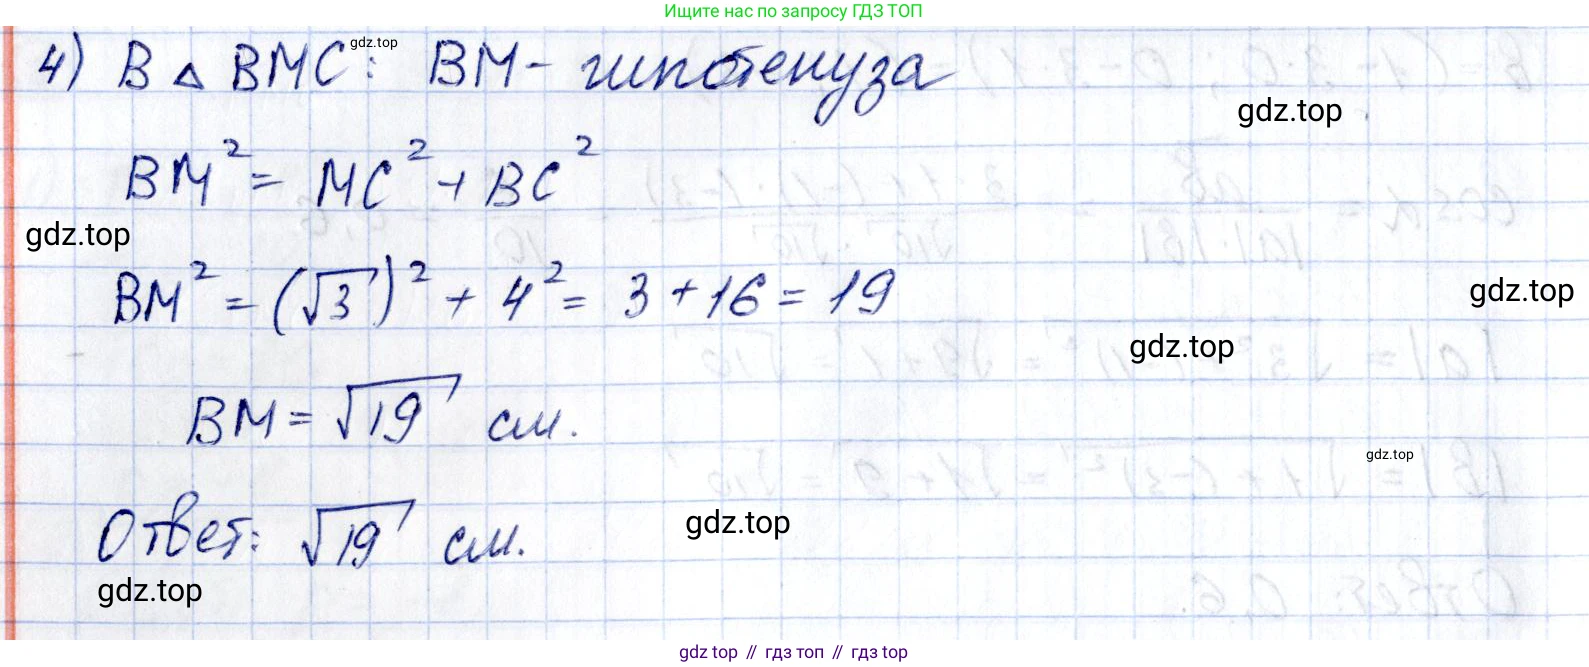 Ищите нас по запросу ГДЗ ТОП
4) В △ BMC: BM - гипотенуза
gdz.top
gdz.top
BM² = MC² + BC²
gdz.top
BM² = (√3)² + 4² = 3 + 16 = 19
gdz.top
gdz.top
BM = √19 см.
gdz.top
Ответ: √19 см.
gdz.top
gdz.top
gdz top // гдз топ // гдз top